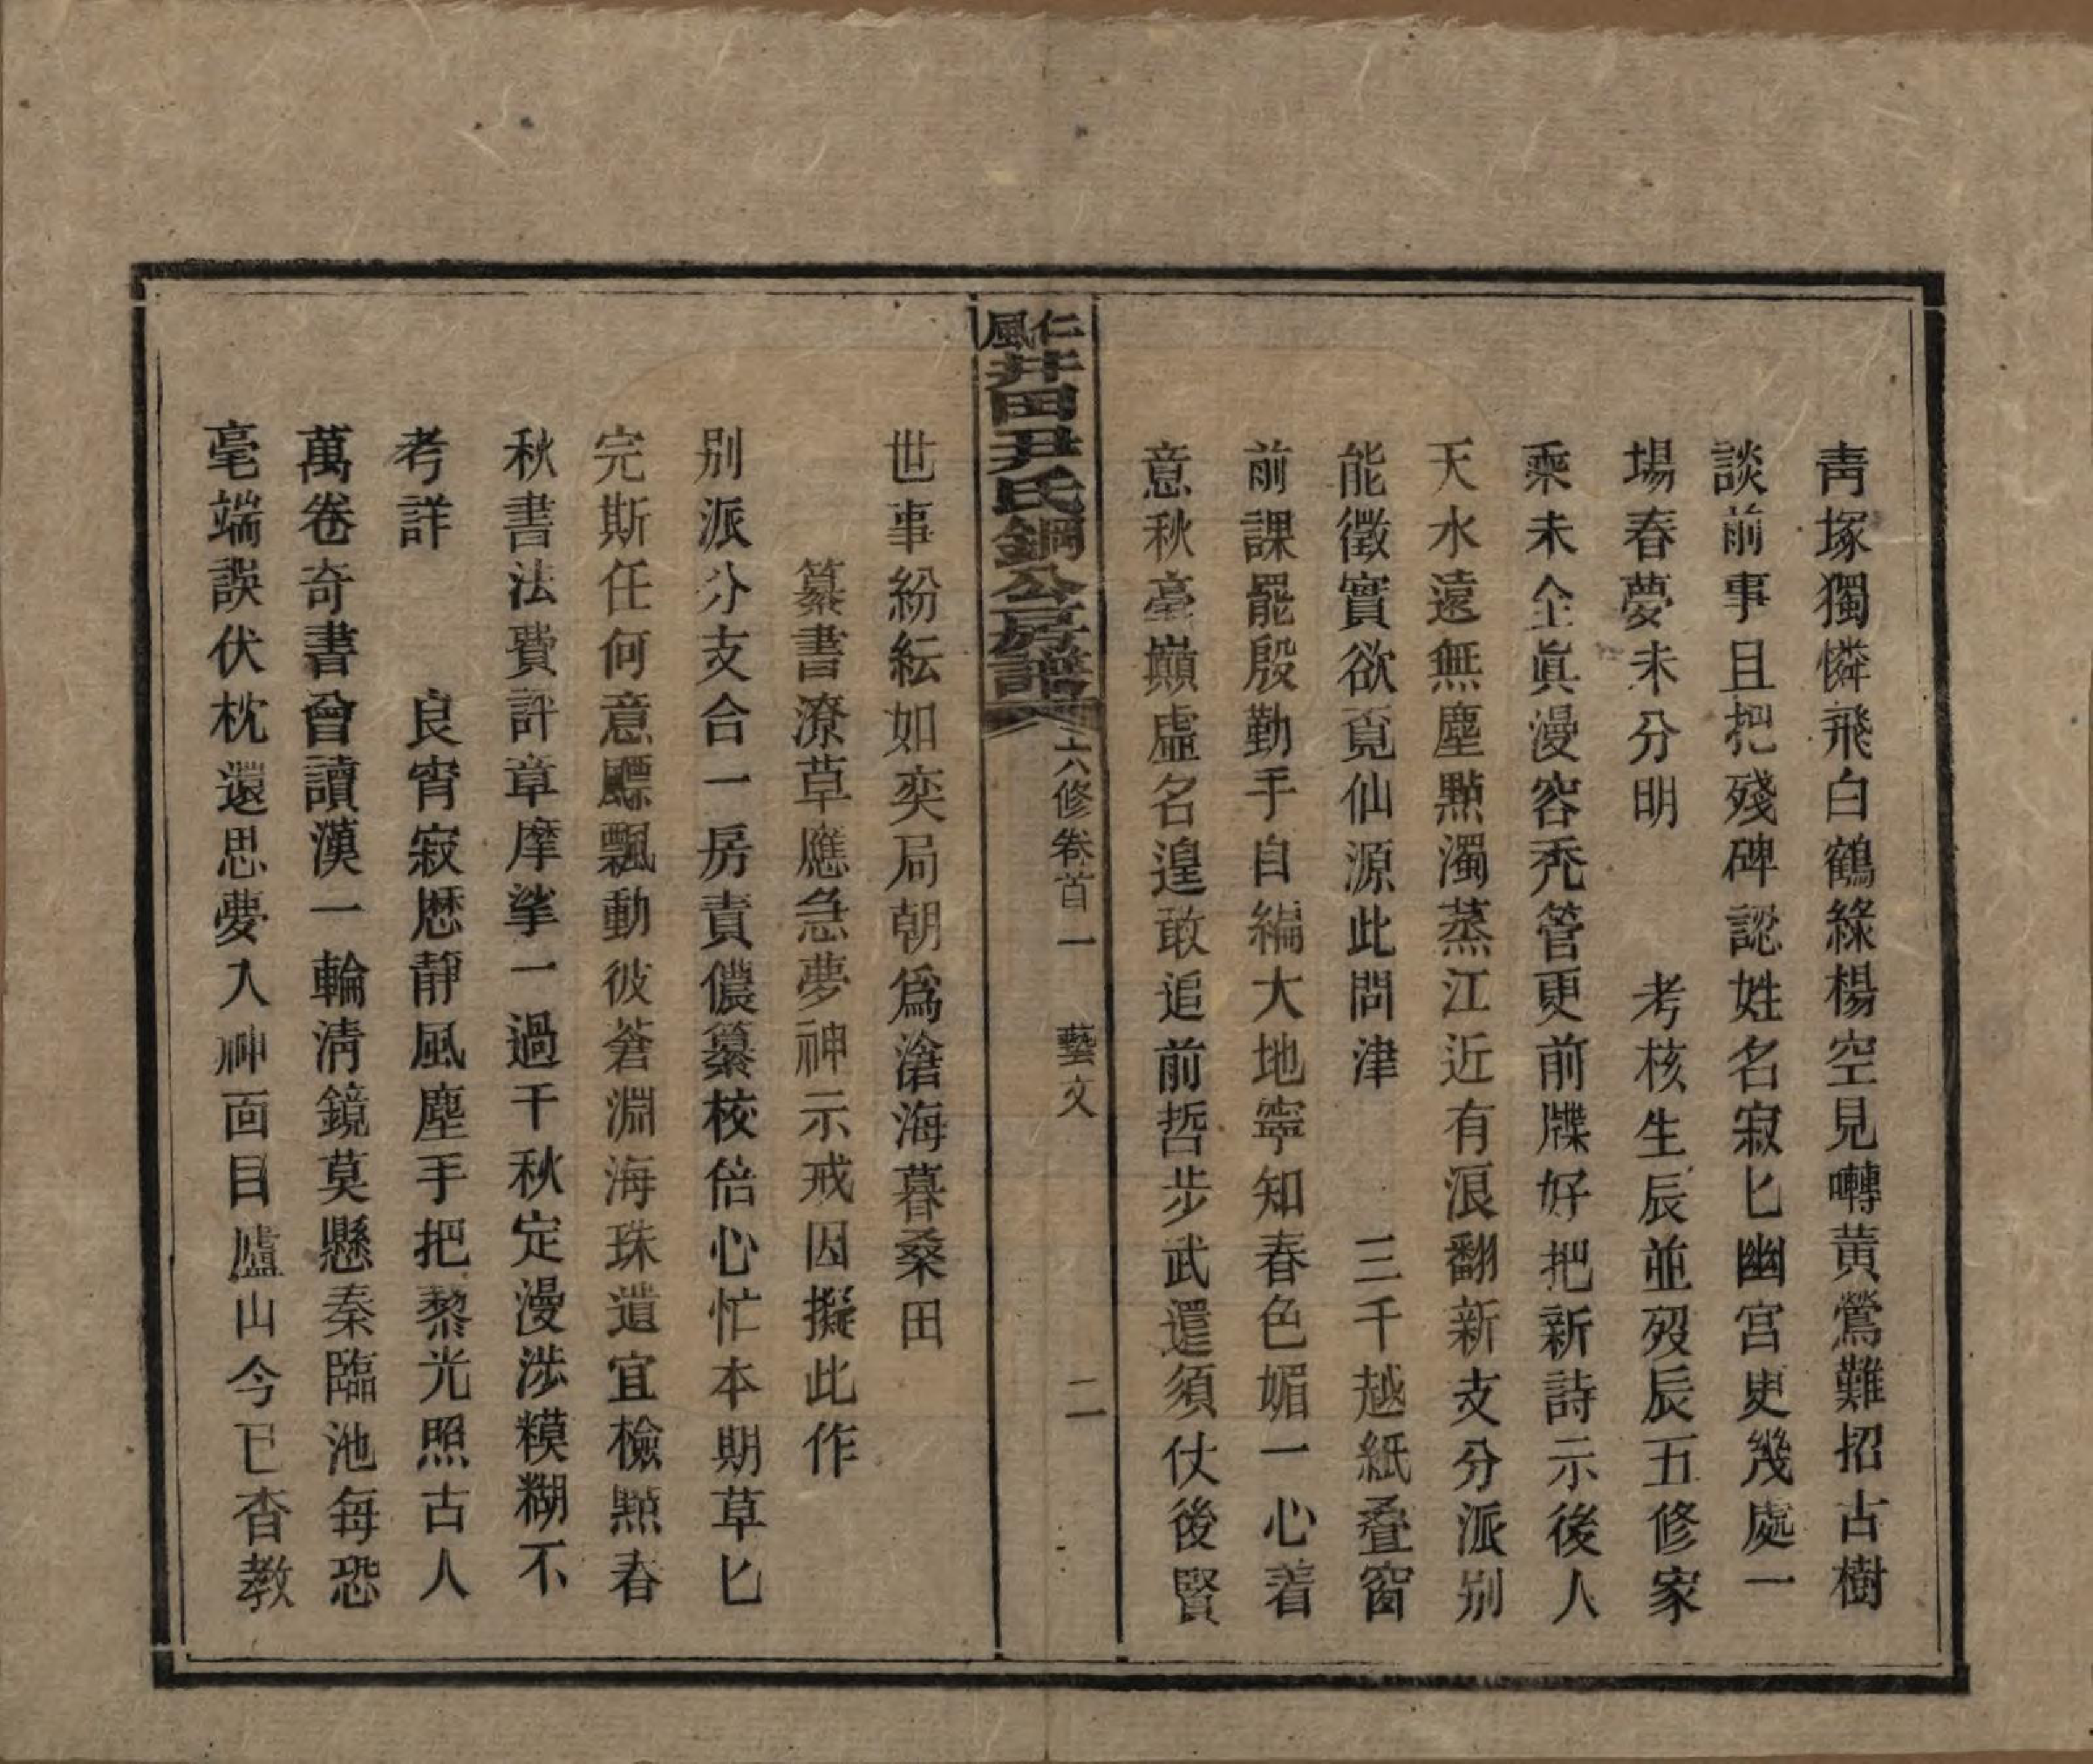 青塚獨憐飛白鶴綠楊空見囀黃鶯難招古樹
談前事且把殘碑認姓名寂匕幽宮更幾處一
場春夢未分明　　考核生辰並歿辰五修家
乘未全眞漫容禿管更前牒好把新詩示後人
天水遠無塵點濁蒸江近有浪翻新支分派別
能徵實欲覓仙源此問津　　三千越紙叠窗
前課罷殷勤手自編大地寧知春色媚一心着
意秋毫巔虛名遑敢追前哲步武還須仗後賢
仁風井田尹氏鋼公房譜　六修卷首一　藝文　二
世事紛紜如奕局朝爲滄海暮桑田
纂書潦草應急夢神示戒因擬此作
別派分支合一房責儂纂校倍心忙本期草匕
完斯任何意飃飄動彼蒼淵海珠遺宜檢點春
秋書法費評章摩挲一過千秋定漫涉糢糊不
考詳　　良宵寂歷靜風塵手把藜光照古人
萬卷奇書曾讀漢一輪淸鏡莫懸秦臨池每恐
毫端誤伏枕還思夢入神面目廬山今已杳教